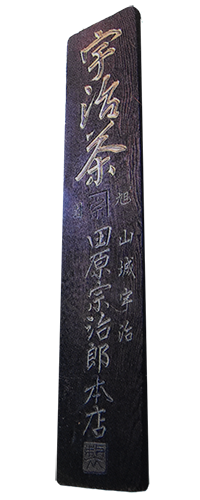 宇治茶
旭
山城宇治
田原宗治郎本店